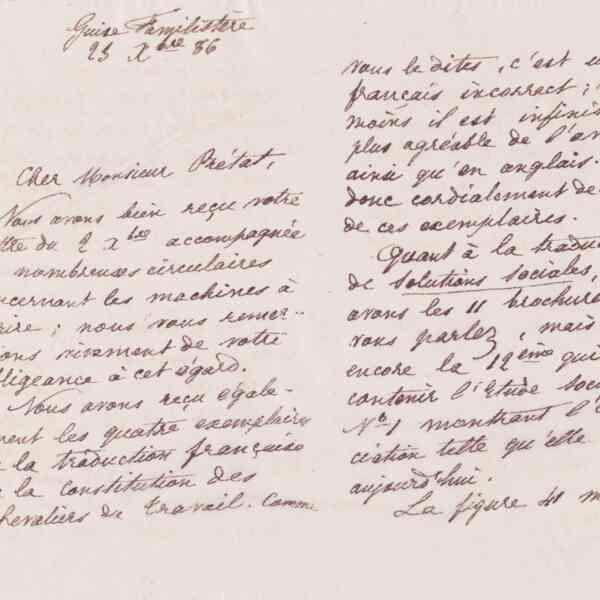 Guise Familistère
23 Xbre 86
Cher Monsieur Prétat,
Nous avons bien reçu votre
ttre du 2 Xbre accompagnée
nombreuses circulaires
ncernant les machines à
rire ; nous vous remer-
ions vivement de votre
bligeance à cet égard.
Nous avons reçu égale-
ment les quatre exemplaires
la traduction française
la constitution des
hevaliers du travail. Comme
vous le dites, c'est u
français incorrect ;
moins il est infini
plus agréable de l'a
ainsi qu'en anglais.
donc cordialement de
de ces exemplaires.
Quant à la traduc
de Solutions sociales,
avons les 11 brochure
vous parlez, mais
encore la 12ème qui
contenir l'Etude Soc
No 1 montrant l'
ciation telle qu'elle
aujourd'hui.
La figure 41 m